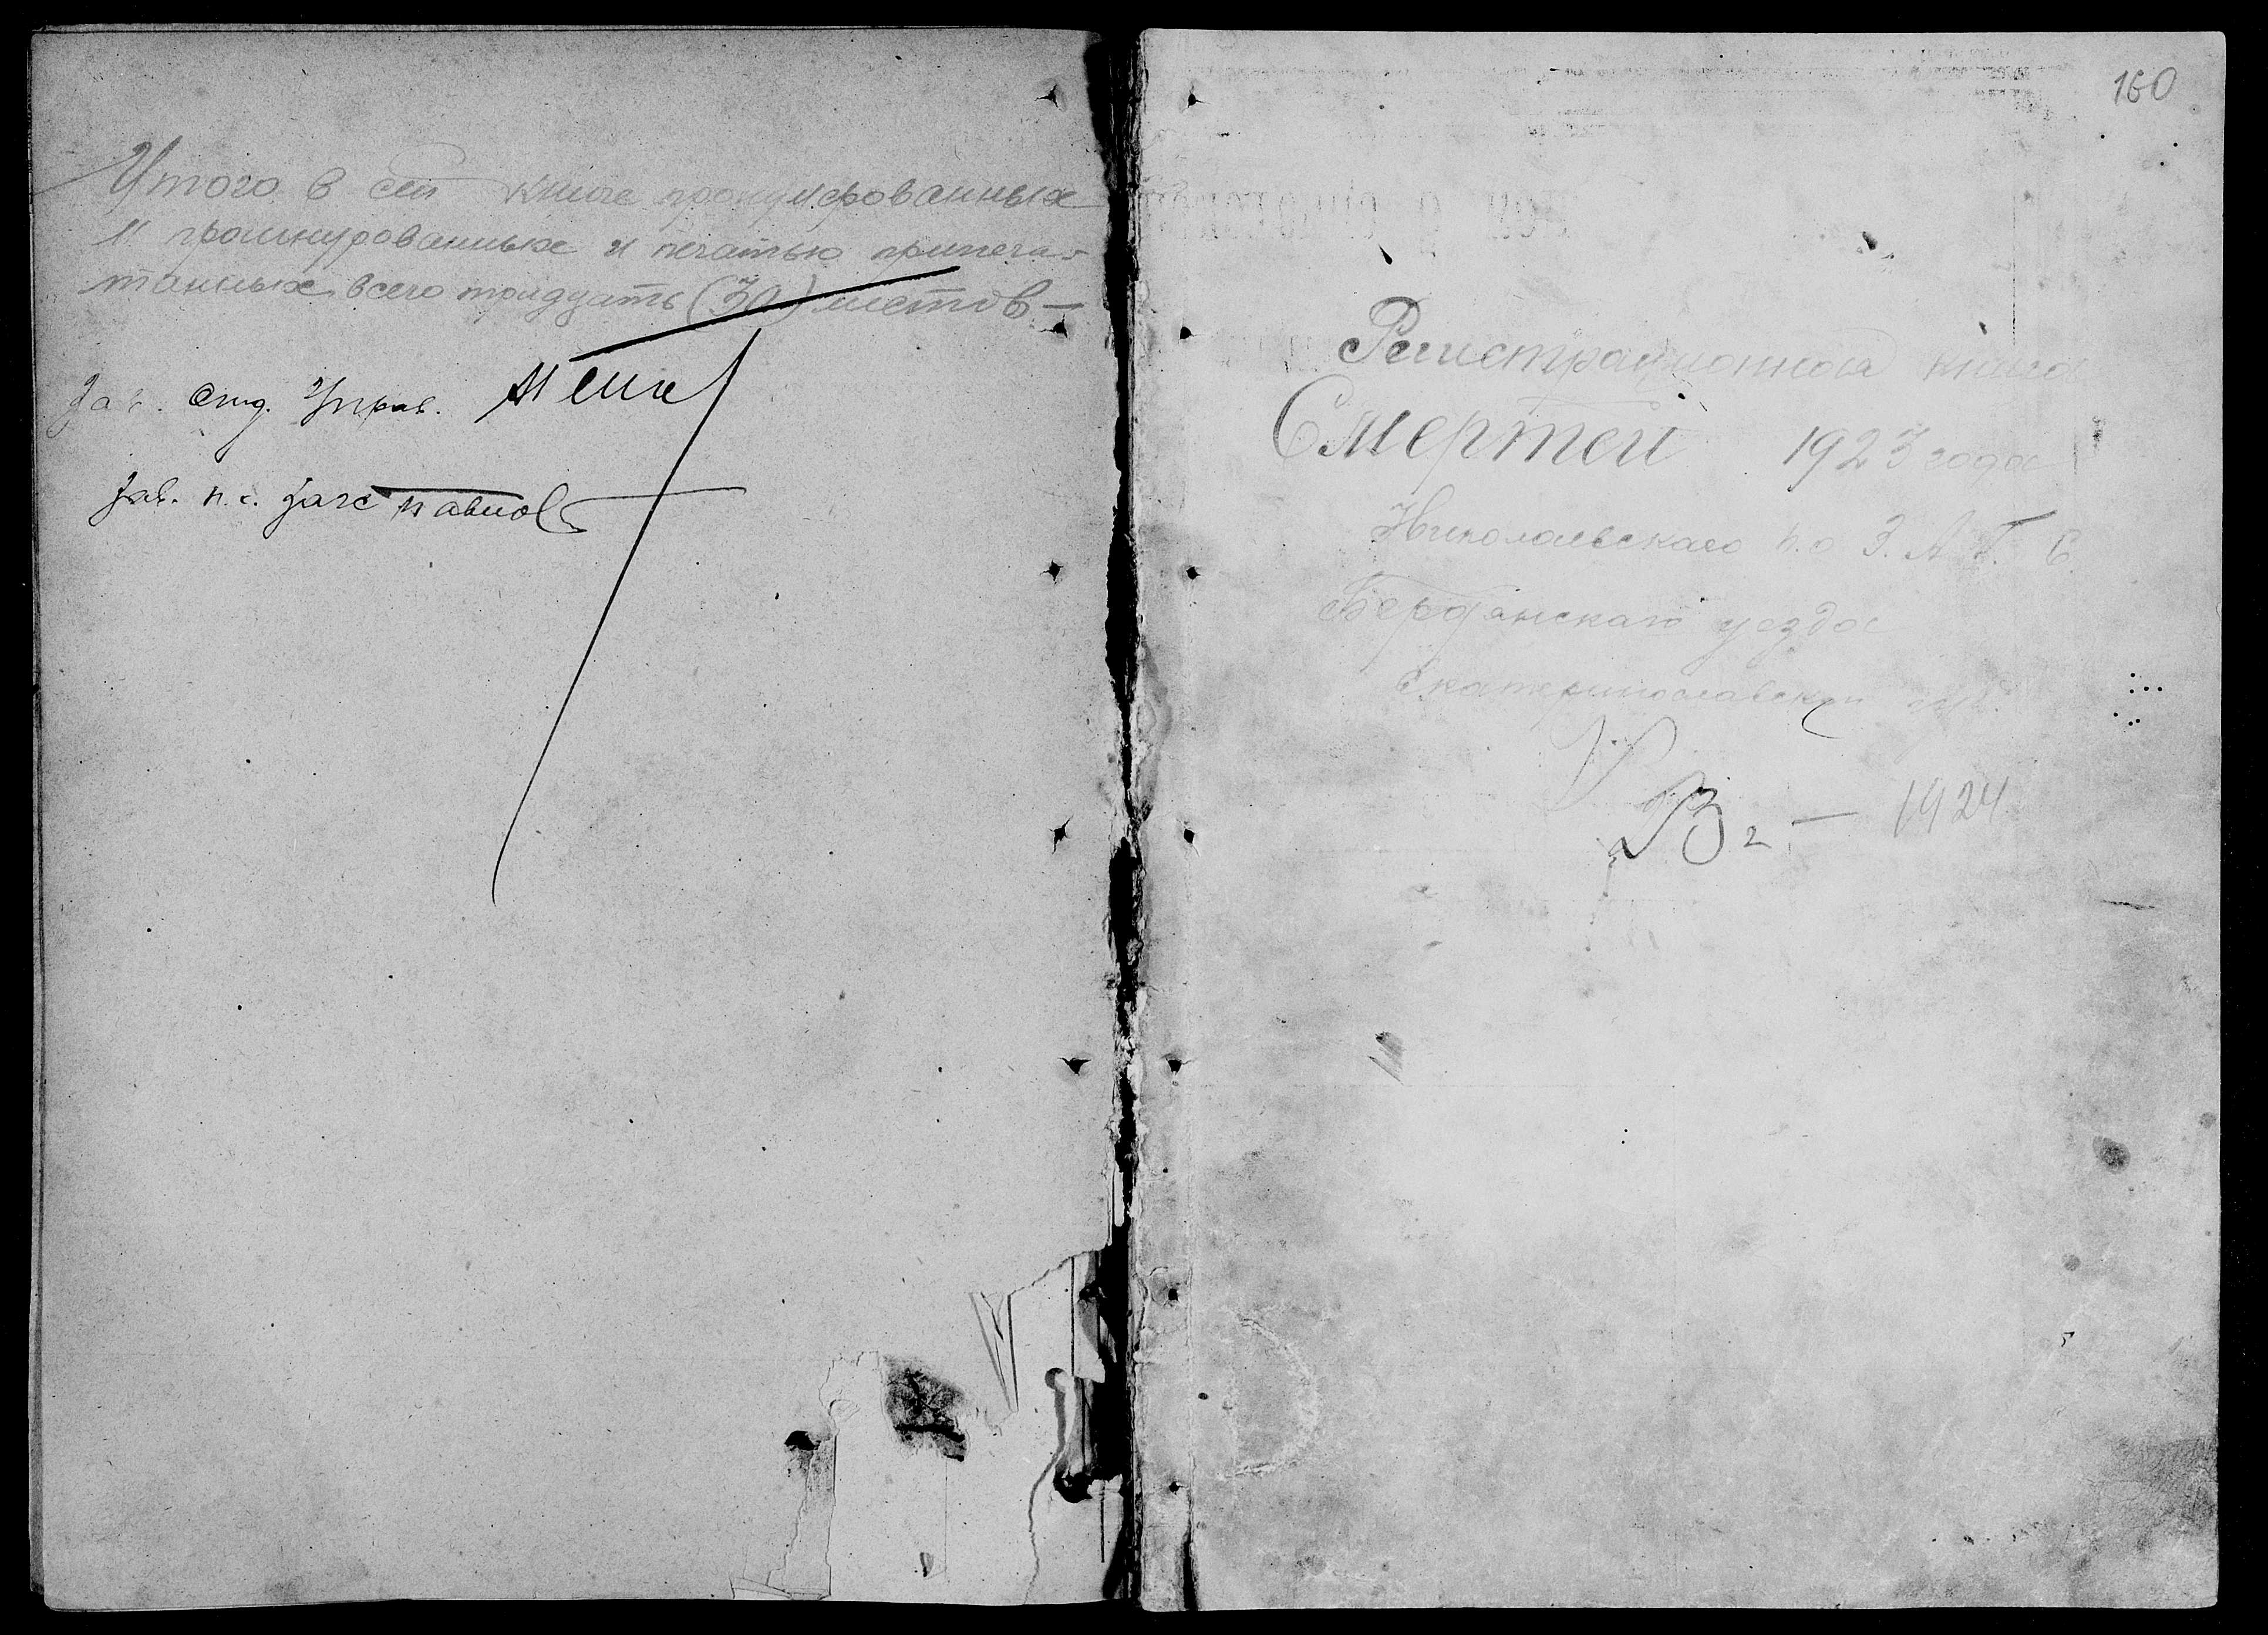 Итого в сей книге пронумерованных
и прошнурованных и печатью припеча-
танных всего тридцать (30) листов —
Зав. Отд. Управ.
Зав. п. о. Загс Павлов
160
Регистрационная книга
Смертей 1923 года
Николаевскаго п. о З. А. Г. С.
Бердянскаго уезда
Екатеринославской губ.
— 1924